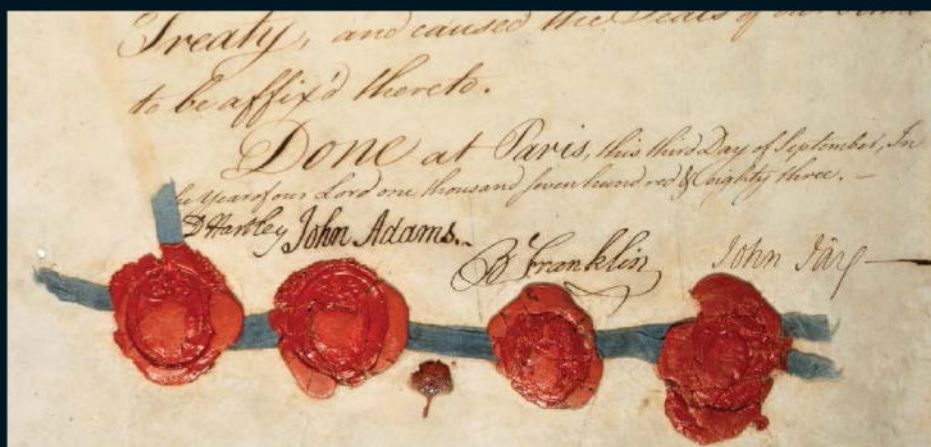 Treaty, and caused the Seals of our
to be affix'd thereto.
Done at Paris, this third Day of September, In
Year of our Lord one thousand seven hundred & eighty three. —
D Hartley John Adams. B Franklin John Jay